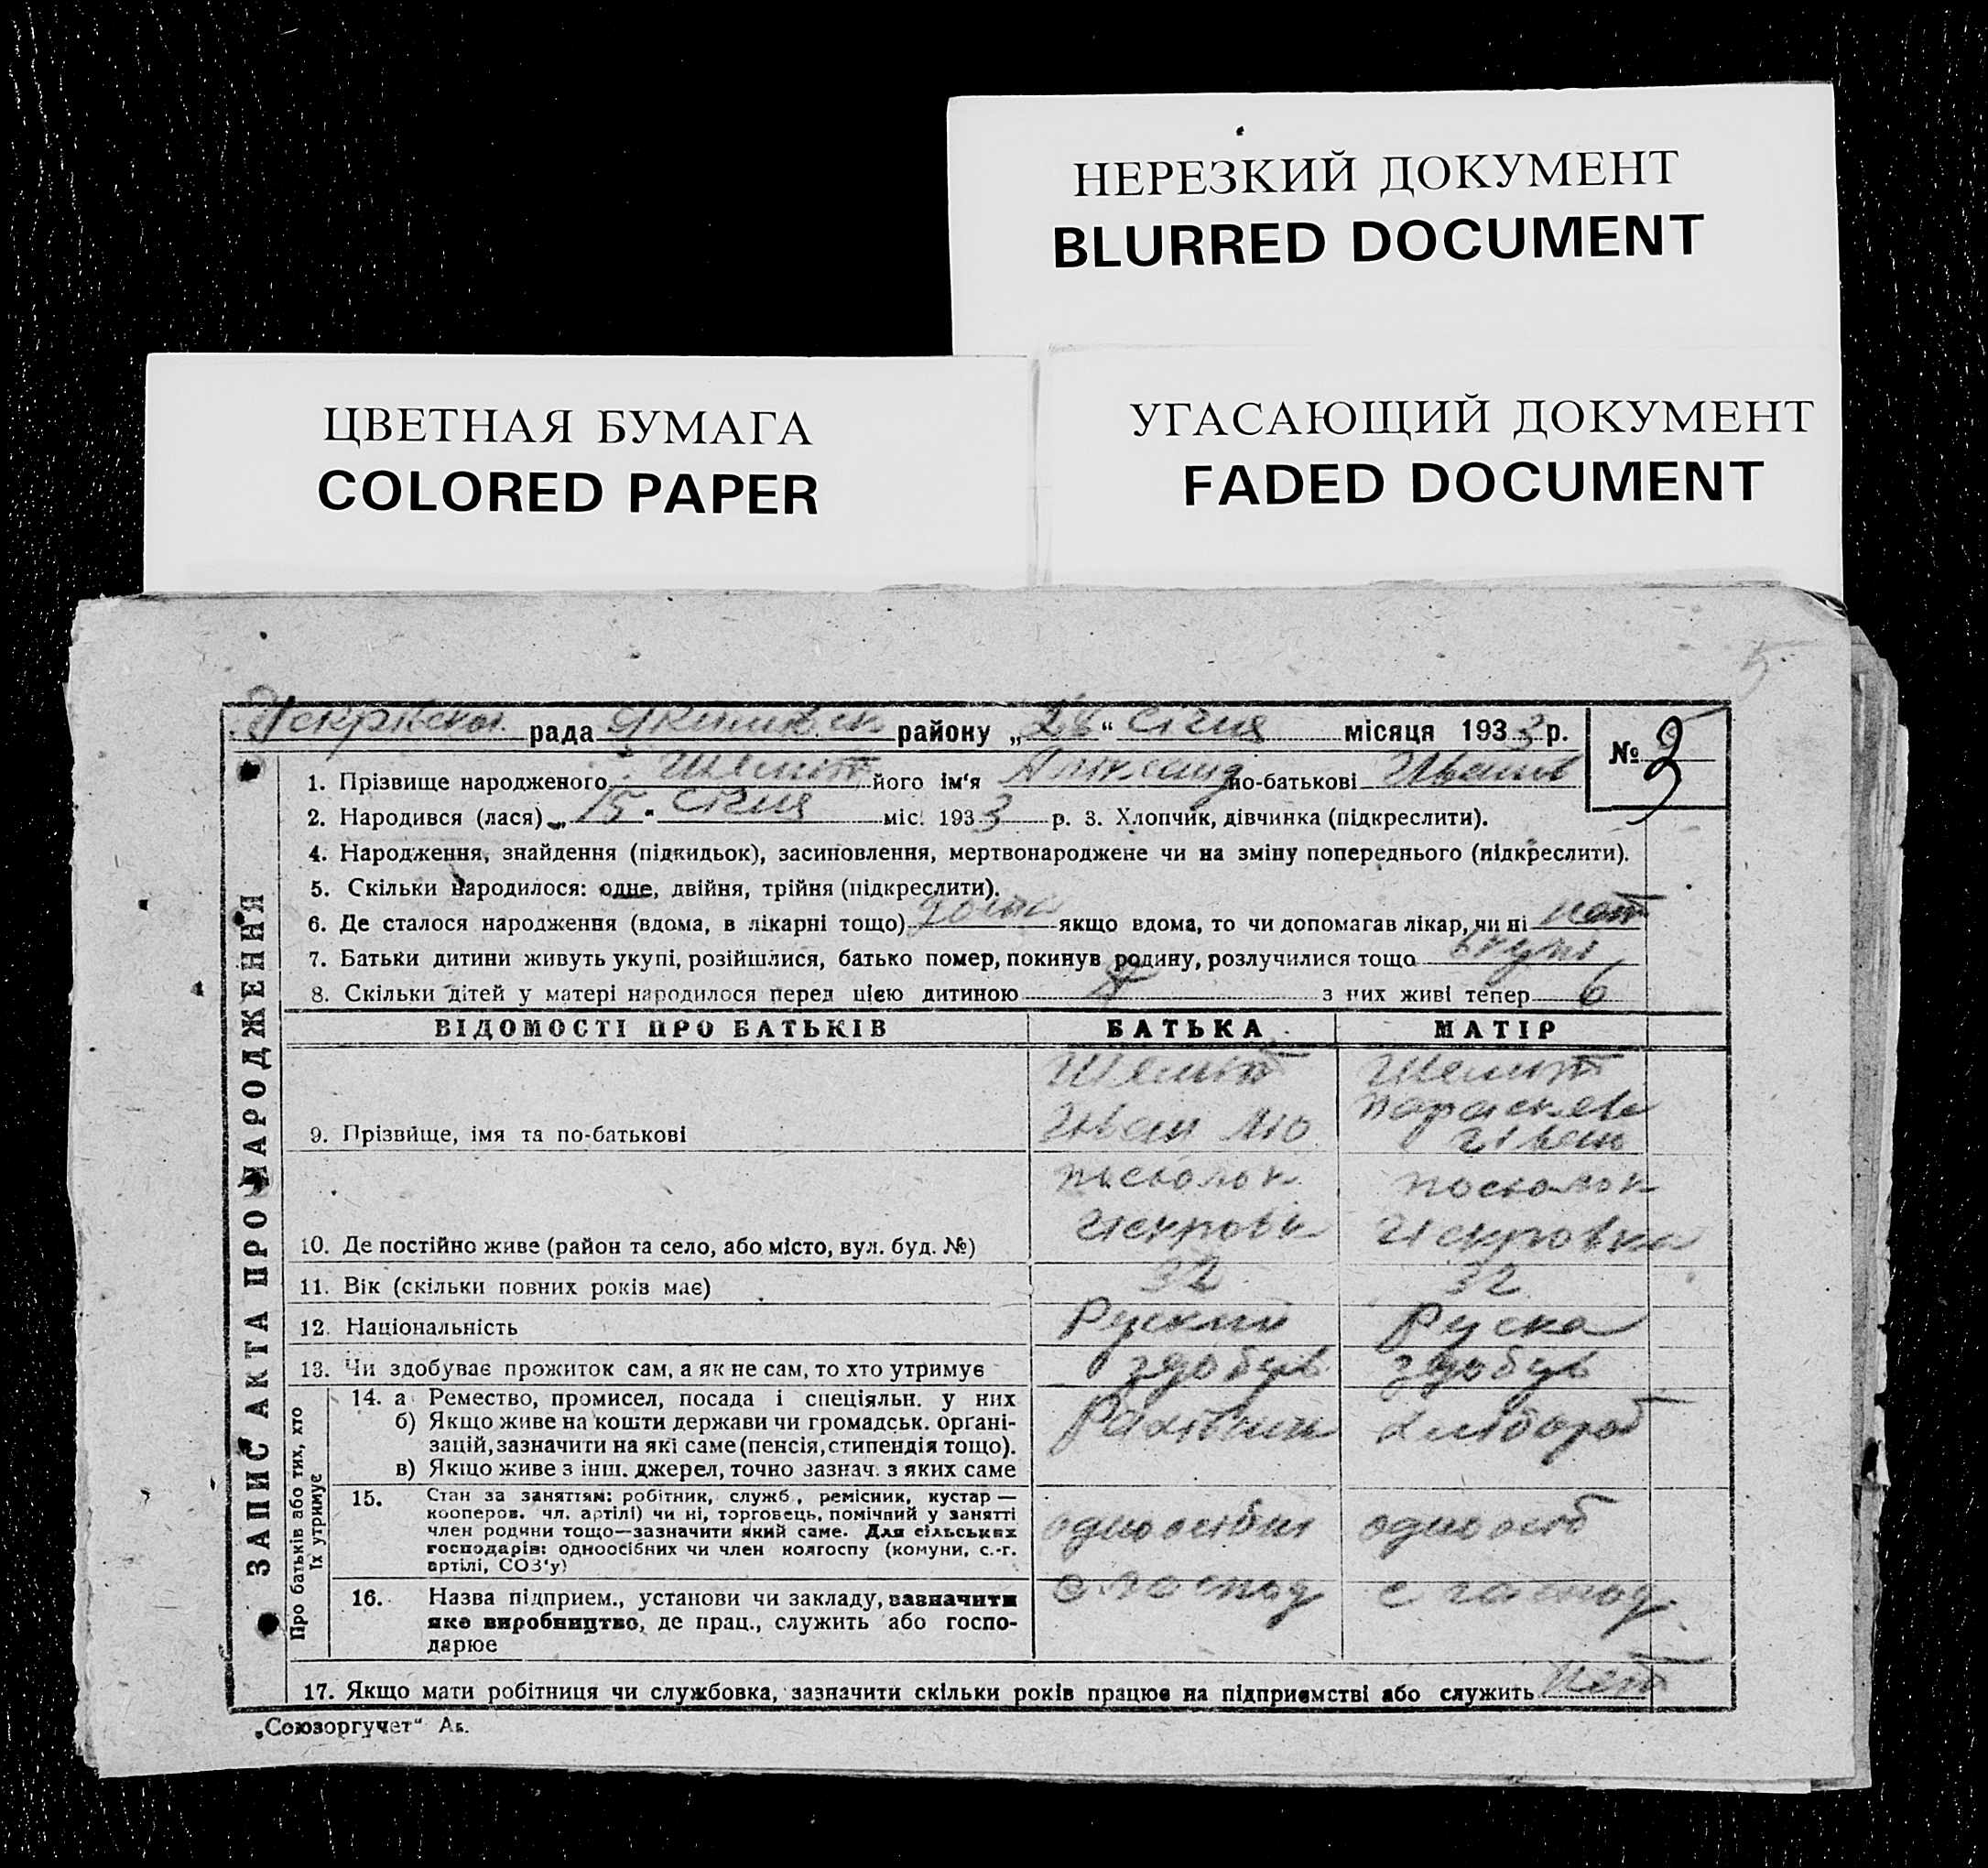 НЕРЕЗКИЙ ДОКУМЕНТ
BLURRED DOCUMENT
ЦВЕТНАЯ БУМАГА
COLORED PAPER
УГАСАЮЩИЙ ДОКУМЕНТ
FADED DOCUMENT
рада району „28“ Січня місяця 1933 р.
№ 3
1. Прізвище народженого його ім‘я по-батькові Иванов
2. Народився (лася) „15“ Січня міс. 1933 р. 3. Хлопчик, дівчинка (підкреслити).
4. Народження, знайдення (підкидьок), засиновлення, мертвонароджене чи на зміну попереднього (підкреслити).
5. Скільки народилося: одне, двійня, трійня (підкреслити).
6. Де сталося народження (вдома, в лікарні тощо) дома якщо вдома, то чи допомагав лікар, чи ні нет
7. Батьки дитини живуть укупі, розійшлися, батько помер, покинув родину, розлучилися тощо вкупі
8. Скільки дітей у матері народилося перед цією дитиною з них живі тепер 6
ВІДОМОСТІ ПРО БАТЬКІВ БАТЬКА МАТІР
9. Прізвище, імя та по-батькові Иван
10. Де постійно живе (район та село, або місто, вул. буд. №) Искровка
11. Вік (скільки повних років має) 32 32
12. Національність Руский Руска
13. Чи здобуває прожиток сам, а як не сам, то хто утримує здобув здобув
14. а Ремество, промисел, посада і спеціяльн. у них
б) Якщо живе на кошти держави чи громадськ. органі-
зацій, зазначити на які саме (пенсія, стипендія тощо).
в) Якщо живе з інш. джерел, точно зазнач. з яких саме
15. Стан за заняттям: робітник, служб., ремісник, кустар —
кооперов. чл. артілі) чи ні, торговець, помічний у занятті
член родини тощо—зазначити який саме. Для сільських
господарів: одноосібних чи член колгоспу (комуни, с.-г.
артілі, СОЗ‘у)
одноособ
16. Назва підприєм., установи чи закладу, зазначити
яке виробництво, де прац., служить або госпо-
дарює
17. Якщо мати робітниця чи службовка, зазначити скільки років працює на підприємстві або служить нет
ЗАПИС АКТА ПРО НАРОДЖЕННЯ
Про батьків або тих, хто
їх утримує
„Союзоргучет“